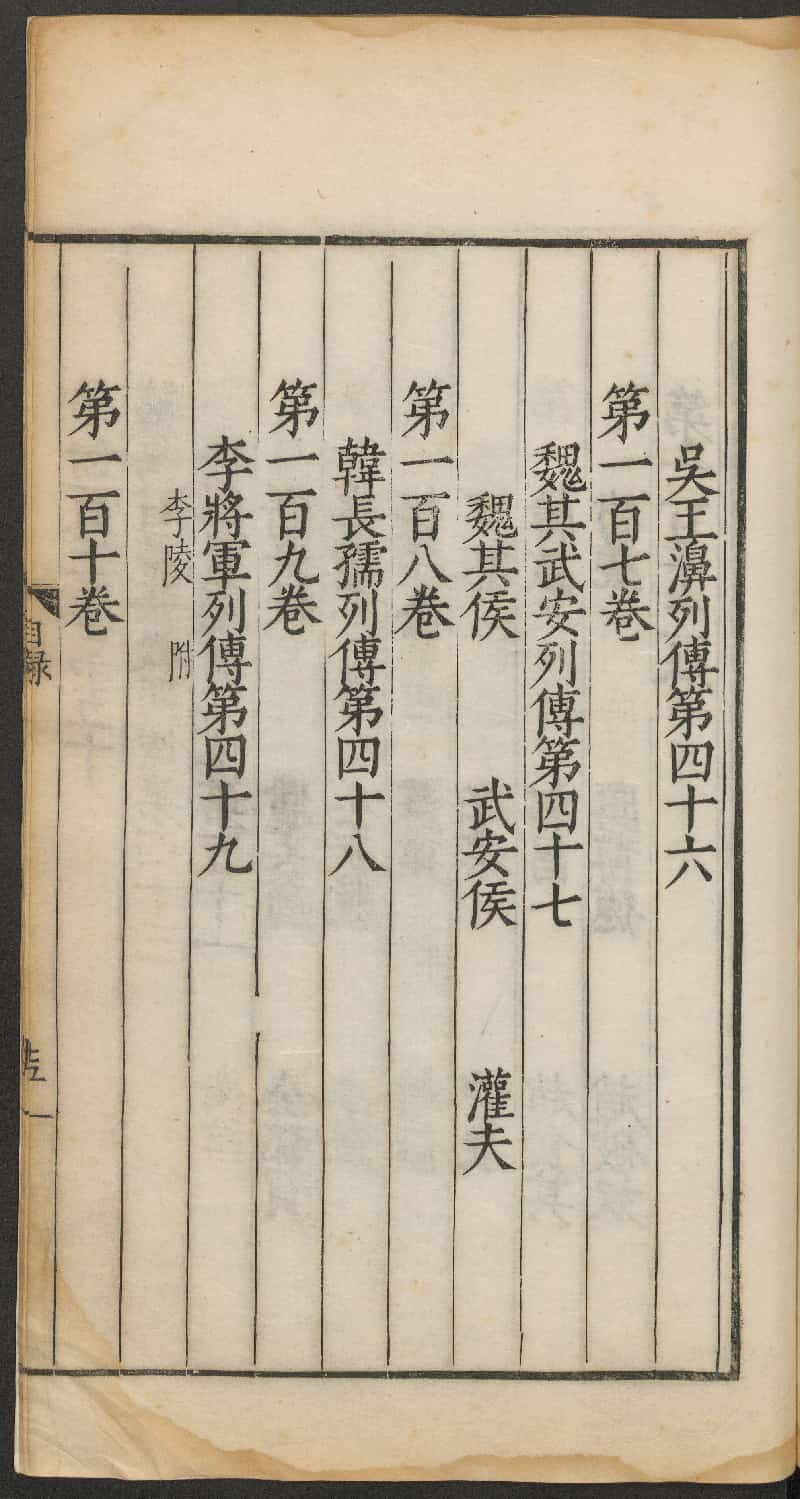 吳王濞列傳第四十六
第一百七卷
魏其武安列傳第四十七
魏其侯　武安侯　灌夫
第一百八卷
韓長孺列傳第四十八
第一百九卷
李將軍列傳第四十九
李陵　附
第一百十卷
目録